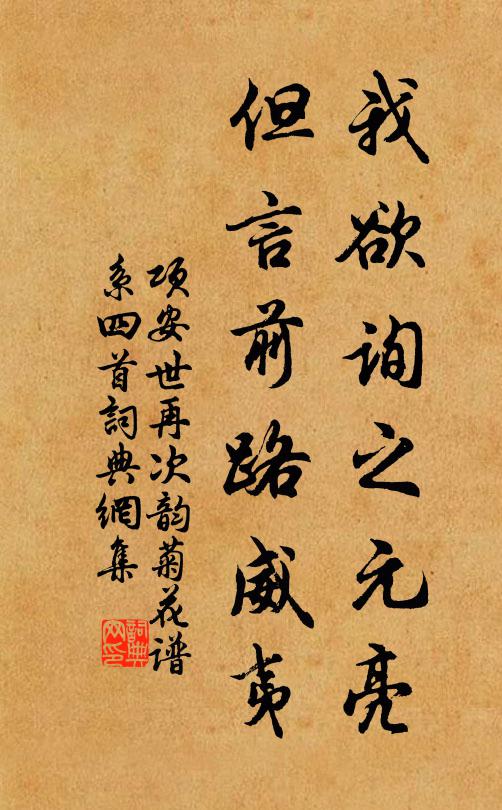 我欲询之元亮
但言前路威夷
项安世再次韵菊花谱
系四首詞典網集
詞典網印